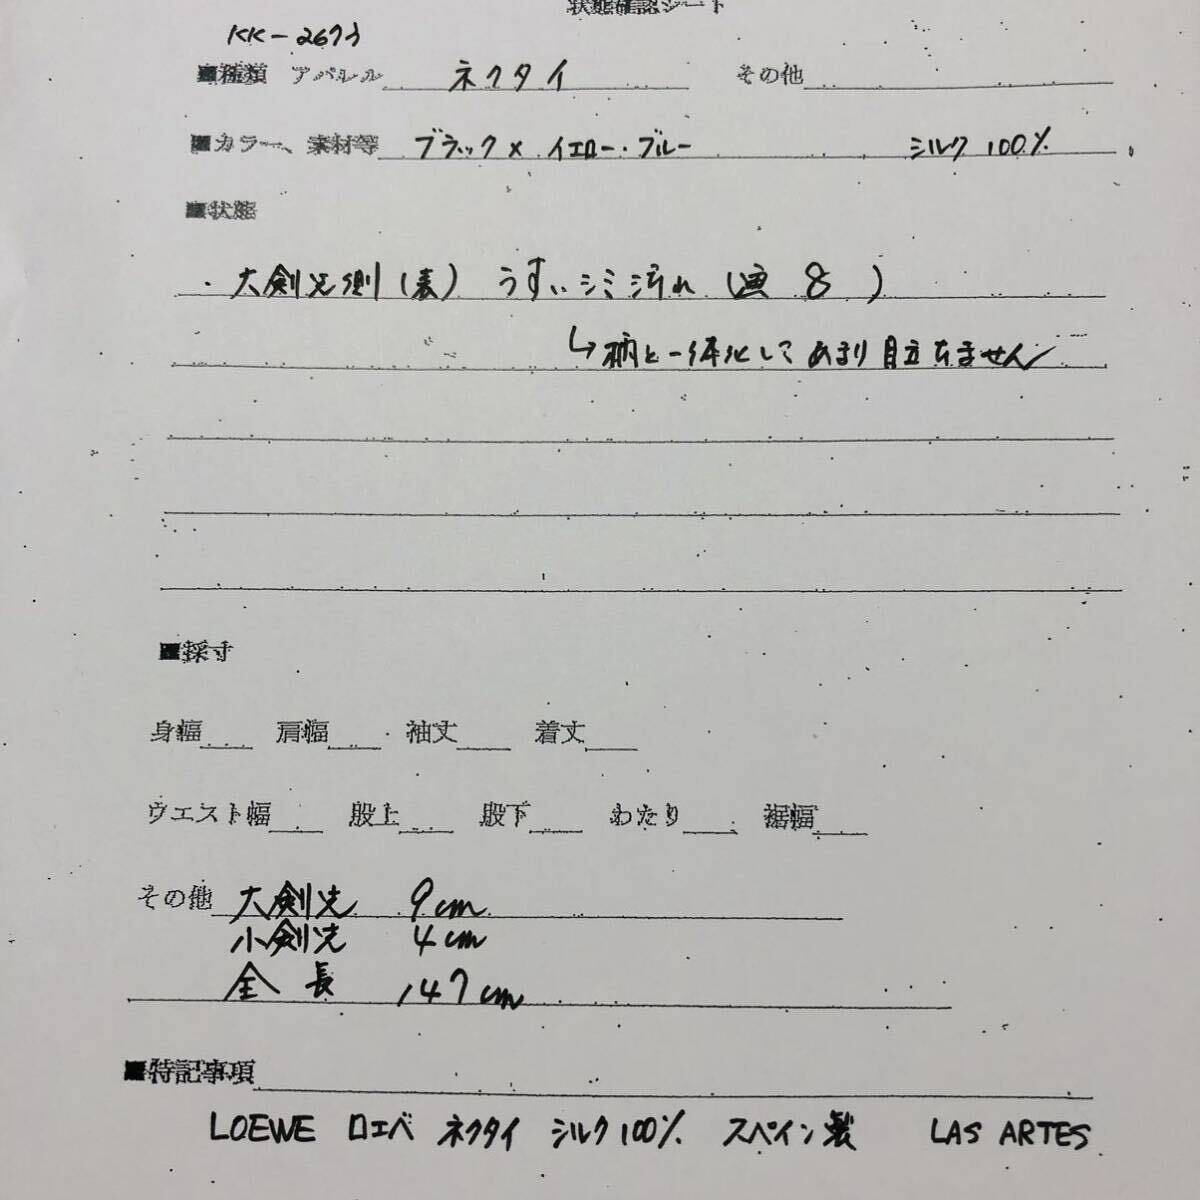 状態確認シート
KK-2673
■種類 アパレル ネクタイ その他
■カラー、素材等 ブラック× イエロー・ブルー シルク 100%
■状態
・大剣先側(表) うすいシミ汚れ(画 8 )
↳柄と一体化してあまり目立ちません
■採寸
身幅 肩幅 袖丈 着丈
ウエスト幅 股上 股下 わたり 裾幅
その他 大剣先 9cm
小剣先 4cm
全長 147cm
■特記事項
LOEWE ロエベ ネクタイ シルク100% スペイン製 LAS ARTES